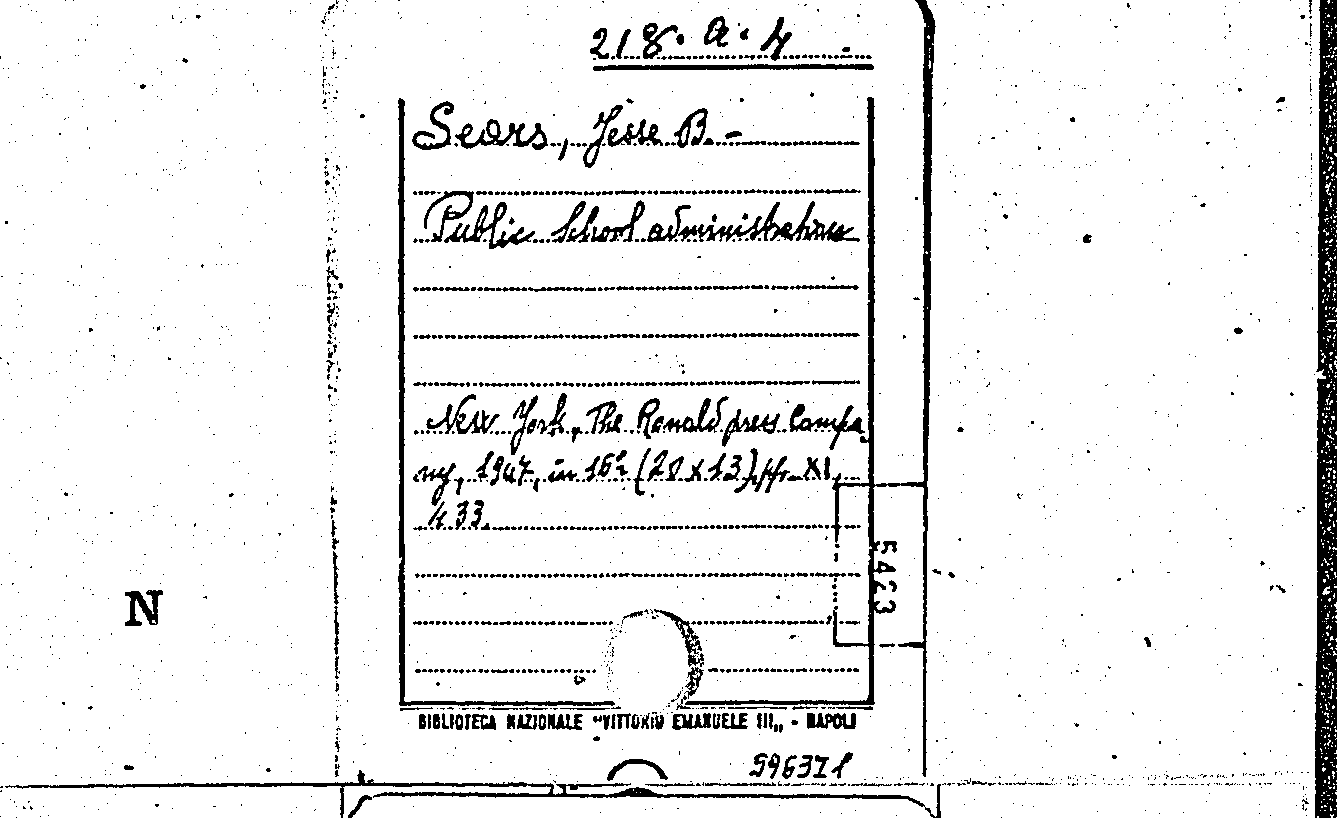 218. a. 4
Sears, Jesse B. -
Public School administration
New York, The Ronald press Compa
ny, 1947, in 16º (20 x 13), pp. XI,
433.
5423
N
BIBLIOTECA NAZIONALE "VITTORIO EMANUELE III„ - NAPOLI